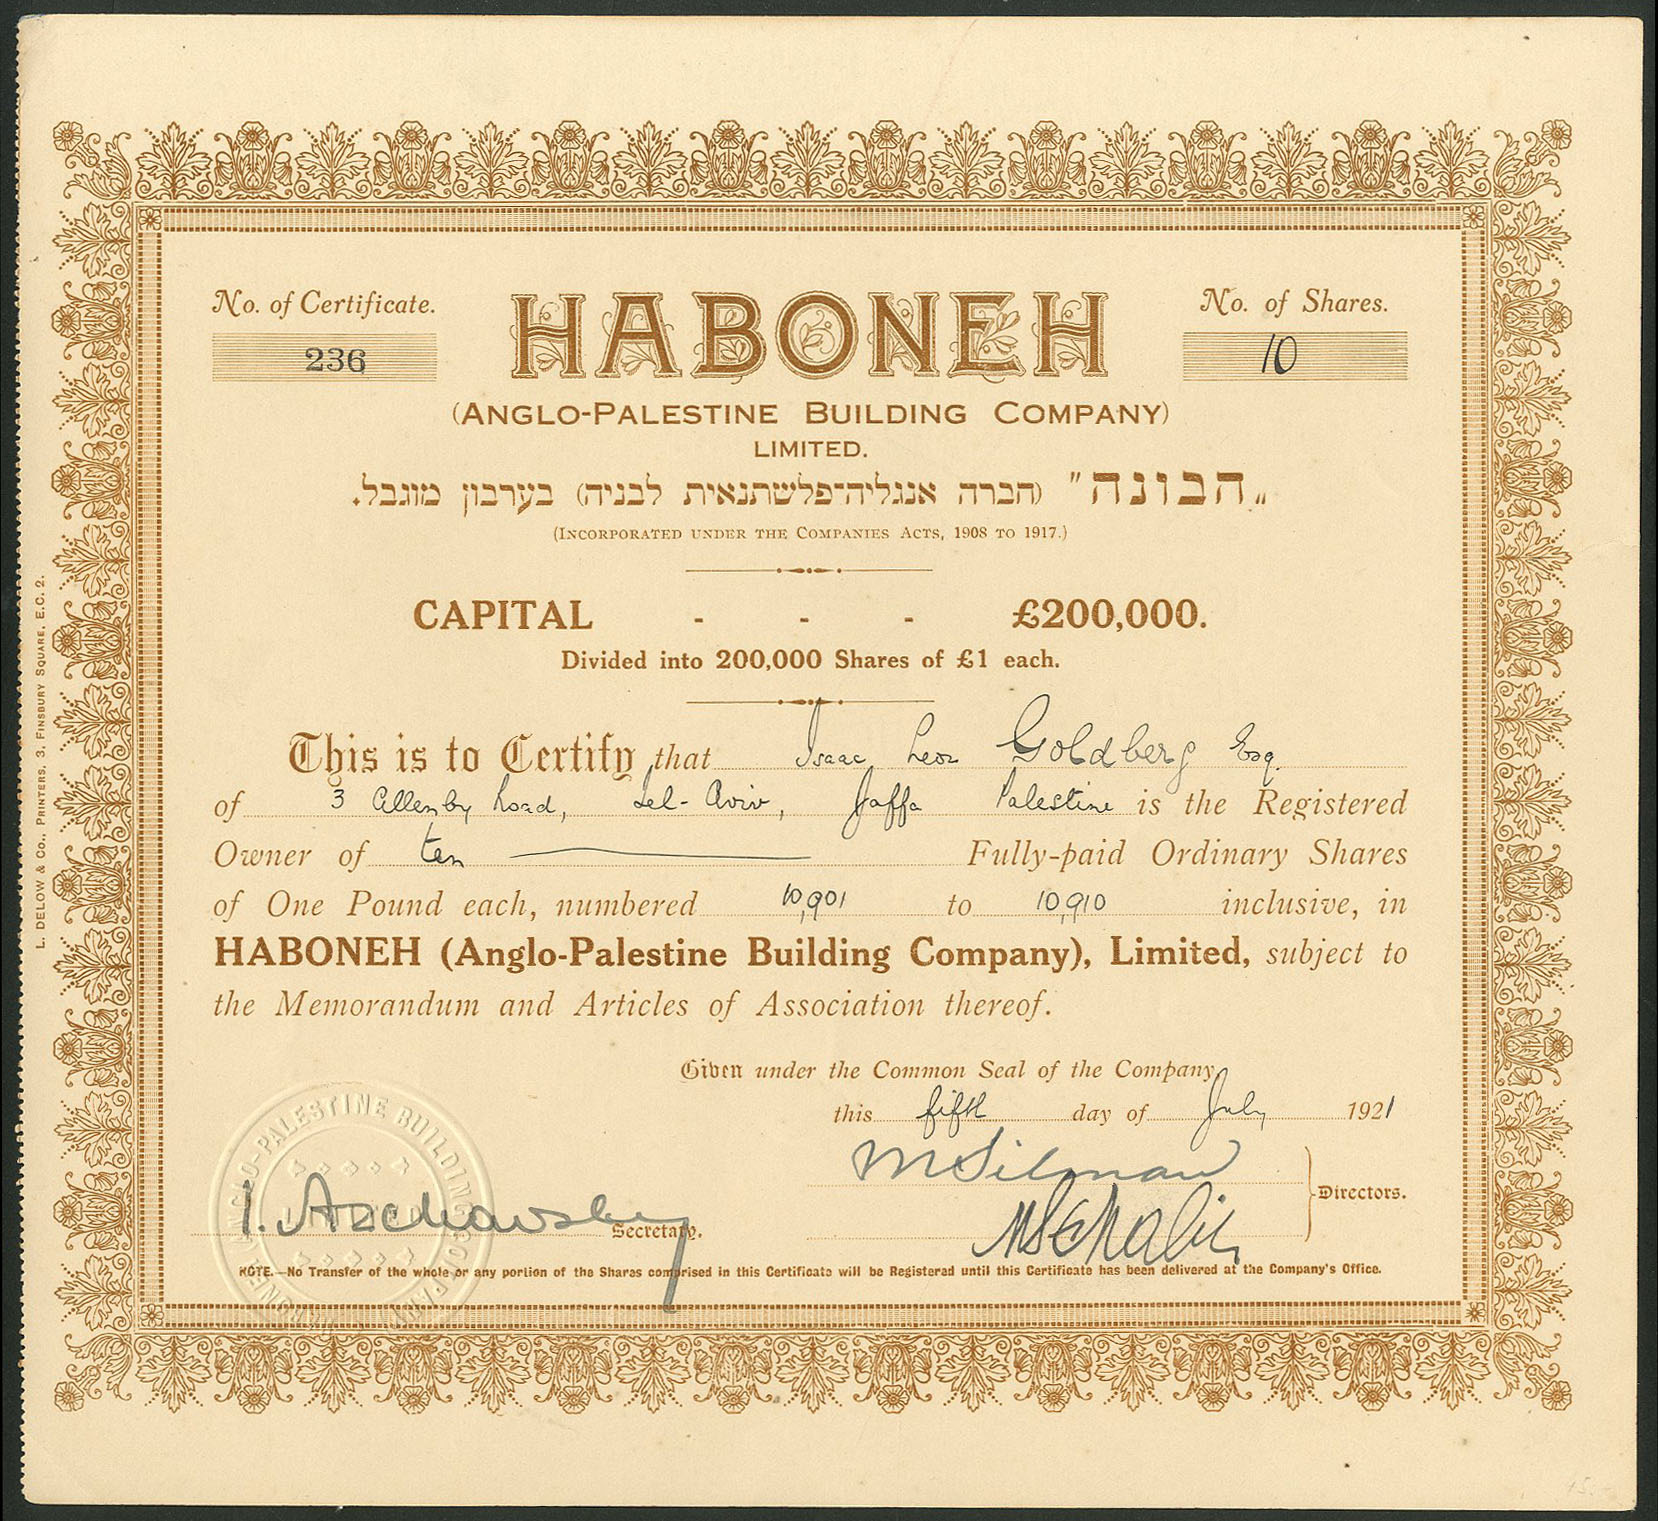 No. of Certificate.
236
HABONEH
No. of Shares.
10
(ANGLO-PALESTINE BUILDING COMPANY)
LIMITED.
„הבונה" (חברה אנגליה־פלשתנאית לבניה) בערבון מוגבל.
(INCORPORATED UNDER THE COMPANIES ACTS, 1908 TO 1917.)
CAPITAL - - - £200,000.
Divided into 200,000 Shares of £1 each.
This is to Certify that Isaac Leon Goldberg Esq.
of 3 Allenby Road, Tel-Aviv, Jaffa Palestine is the Registered
Owner of ten Fully-paid Ordinary Shares
of One Pound each, numbered 10,901 to 10,910 inclusive, in
HABONEH (Anglo-Palestine Building Company), Limited, subject to
the Memorandum and Articles of Association thereof.
Given under the Common Seal of the Company
this fifth day of July 1921
M Silman
Directors.
Secretary.
NOTE.—No Transfer of the whole or any portion of the Shares comprised in this Certificate will be Registered until this Certificate has been delivered at the Company's Office.
HABONEH ANGLO-PALESTINE BUILDING COMPANY
LIMITED
L. DELOW & CO., PRINTERS, 3, FINSBURY SQUARE, E.C. 2.